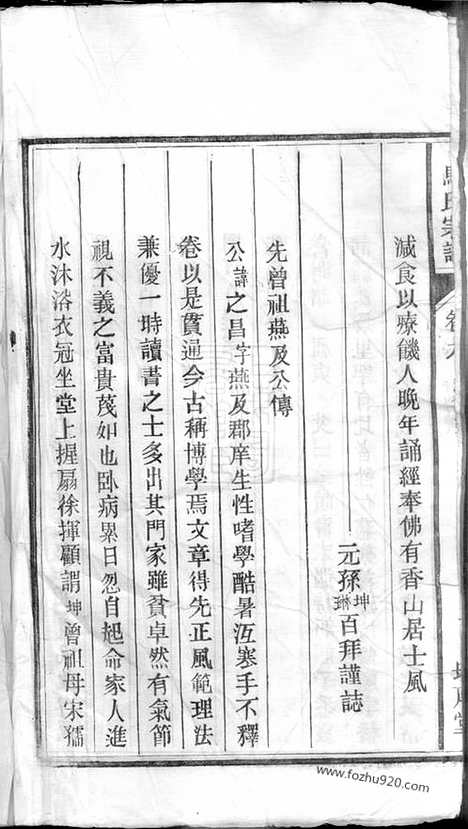 馬氏宗譜
減食以療饑人晚年誦經奉佛有香山居士風
元孫坤琳百拜謹誌
先曾祖燕及公傳
公諱之昌字燕及郡庠生性嗜學酷暑沍寒手不釋
卷以是貫通今古稱博學焉文章得先正風範理法
兼優一時讀書之士多出其門家雖貧卓然有氣節
視不義之富貴蔑如也卧病累日忽自起命家人進
水沐浴衣冠坐堂上握扇徐揮顧謂坤曾祖母宋孺
www.fozhu920.com